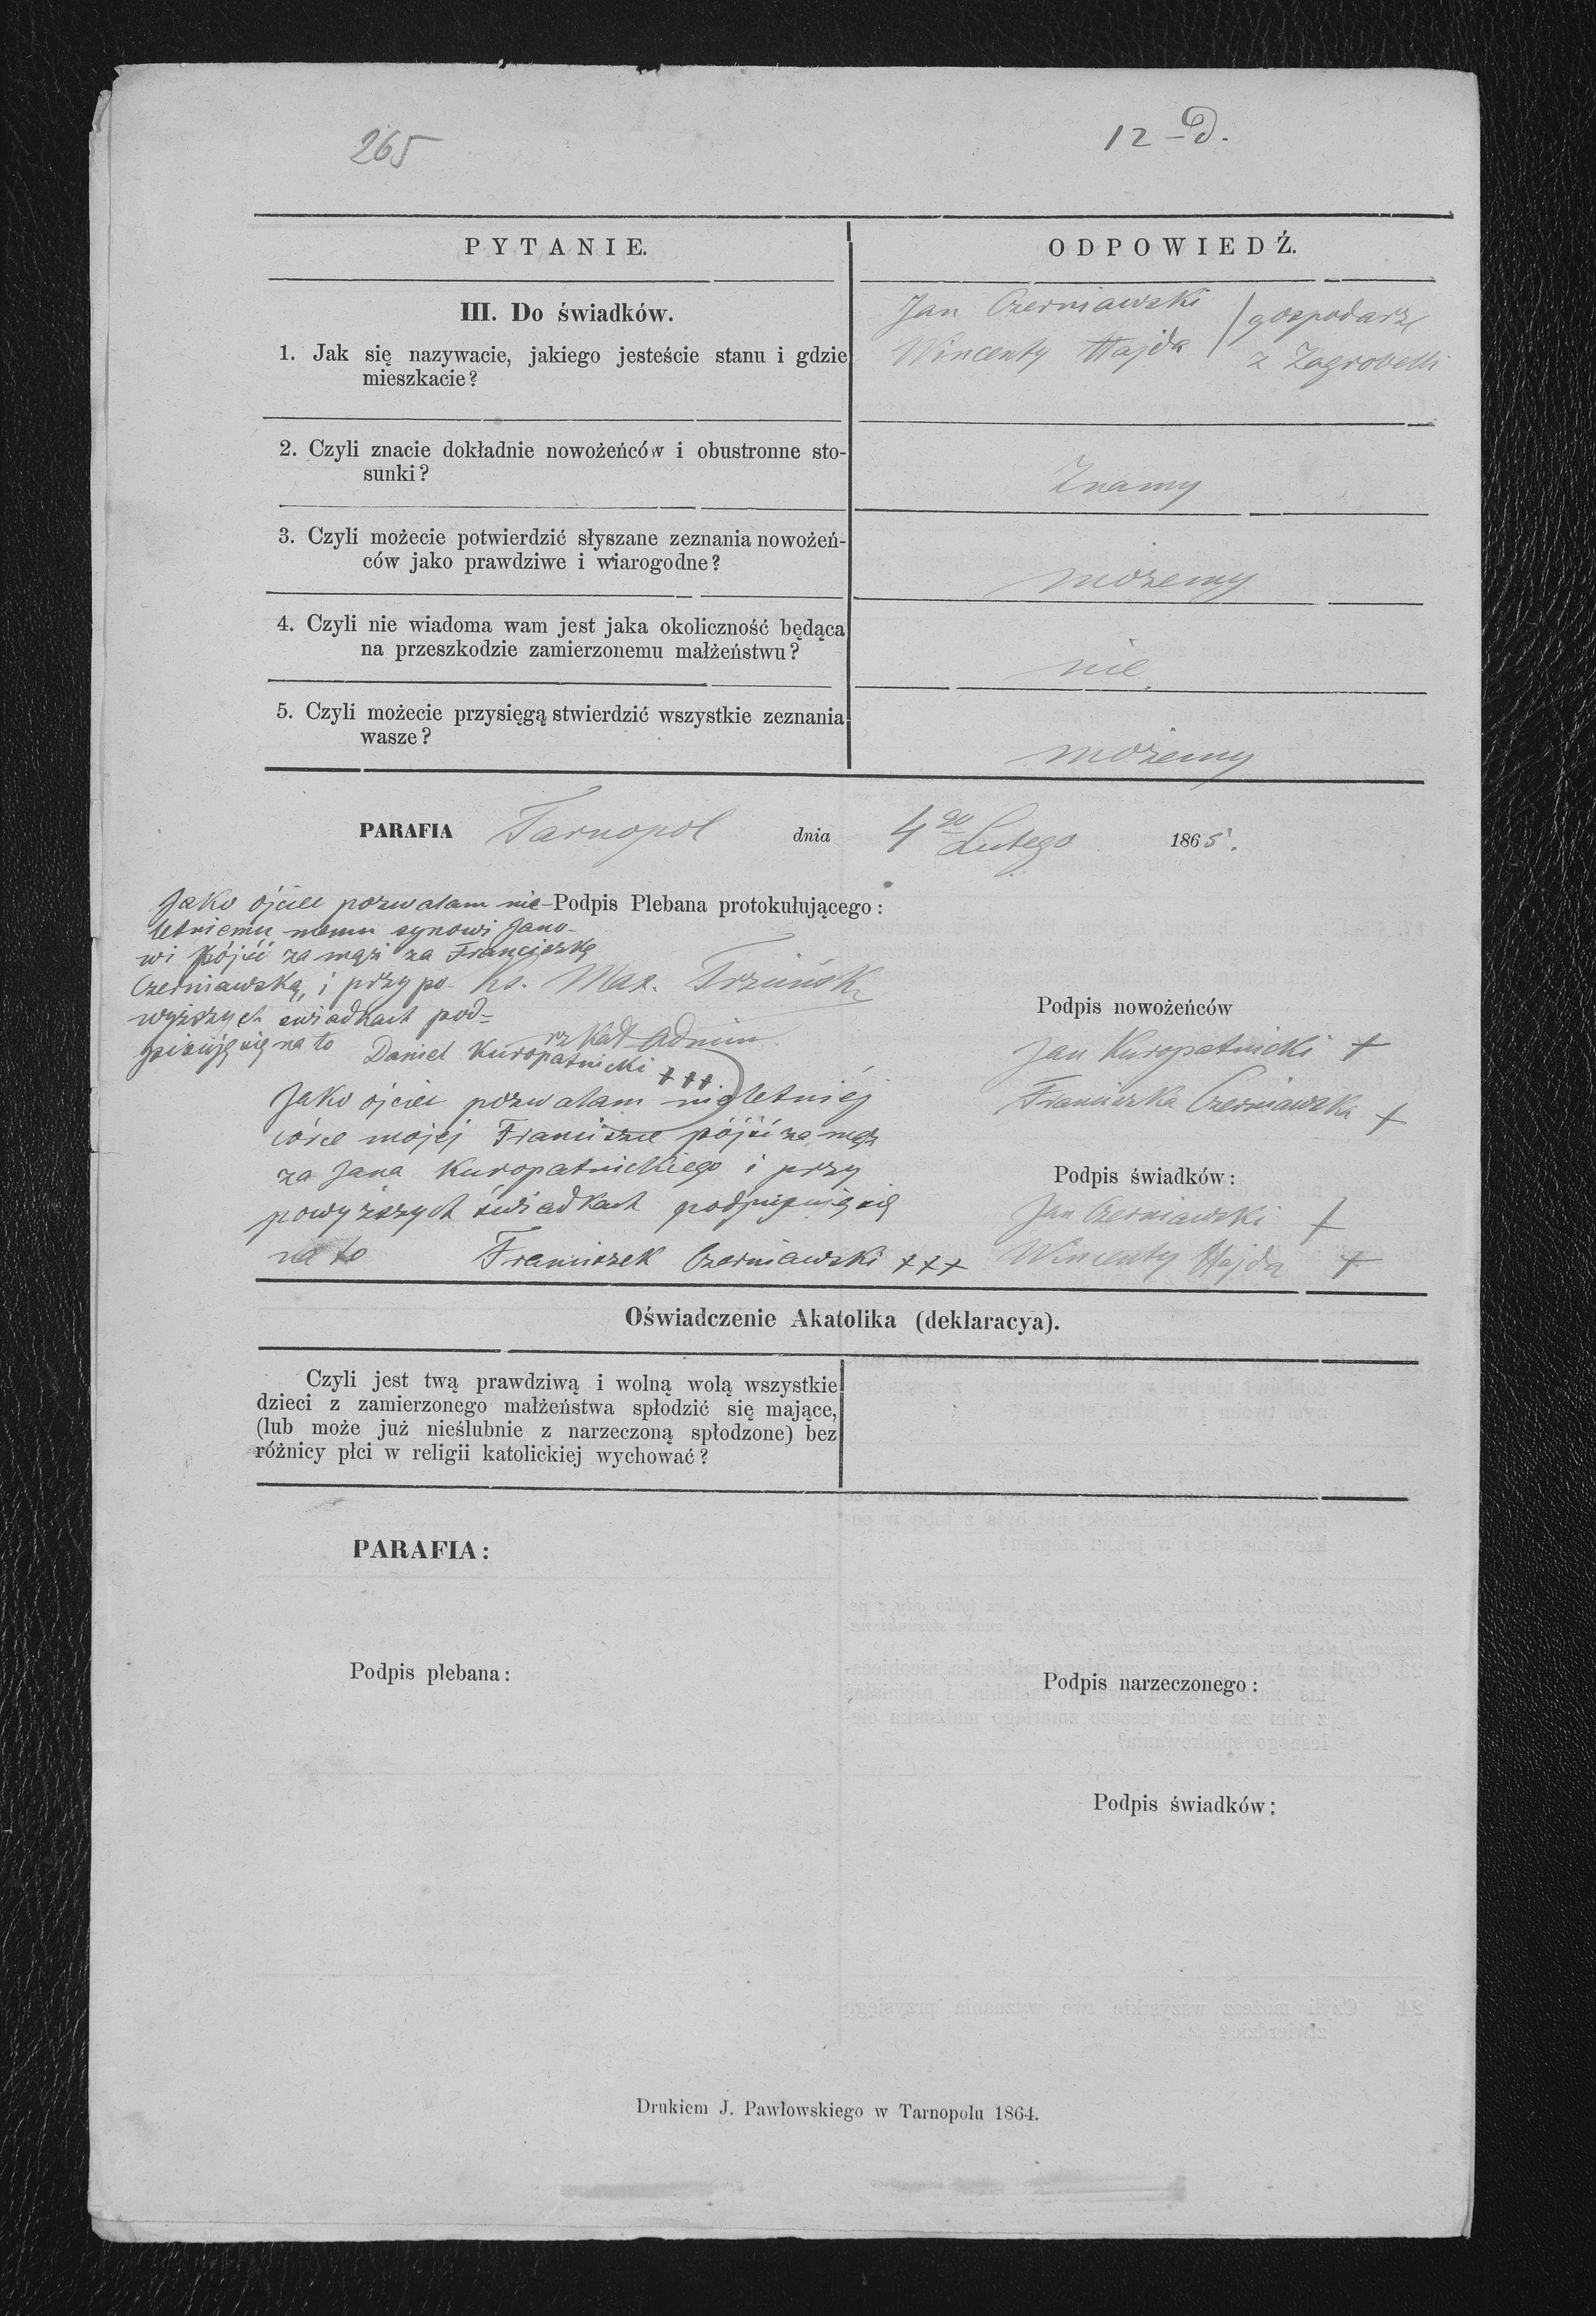 265
12
PYTANIE.
ODPOWIEDŹ.
III. Do świadków.
1. Jak się nazywacie, jakiego jesteście stanu i gdzie
mieszkacie?
Jan Czerniawski
Wincenty Hajda
gospodarze
z Zagrobelli
2. Czyli znacie dokładnie nowożeńców i obustronne sto-
sunki?
Znamy
3. Czyli możecie potwierdzić słyszane zeznania nowożeń-
ców jako prawdziwe i wiarogodne?
możemy
4. Czyli nie wiadoma wam jest jaka okoliczność będąca
na przeszkodzie zamierzonemu małżeństwu?
nie
5. Czyli możecie przysięgą stwierdzić wszystkie zeznania
wasze?
możemy
PARAFIA Tarnopol dnia 4go Lutego 1865.
Podpis Plebana protokułującego:
Jako ójciec pozwalam nie-
letniemu memu synowi Jano-
wi pójść za mąż za Franciszkę
Czerniawską, i przy po-
wyższych świadkach pod-
pisuję się na to
Daniel Kuropatnicki +++
Ks. Max.
Admin.
Jako ójciec pozwalam nieletniéj
córce mojéj Franciszce pójść za mąż
za Jana Kuropatnickiego i przy
powyższych świadkach podpisuję się
na to Franciszek Czerniawski +++
Podpis nowożeńców
Jan Kuropatnicki +
Franciszka Czerniawska +
Podpis świadków:
Jan Czerniawski +
Wincenty Hajda +
Oświadczenie Akatolika (deklaracya).
Czyli jest twą prawdziwą i wolną wolą wszystkie
dzieci z zamierzonego małżeństwa spłodzić się mające,
(lub może już nieślubnie z narzeczoną spłodzone) bez
różnicy płci w religii katolickiej wychować?
PARAFIA:
Podpis plebana:
Podpis narzeczonego:
Podpis świadków:
Drukiem J. Pawłowskiego w Tarnopolu 1864.